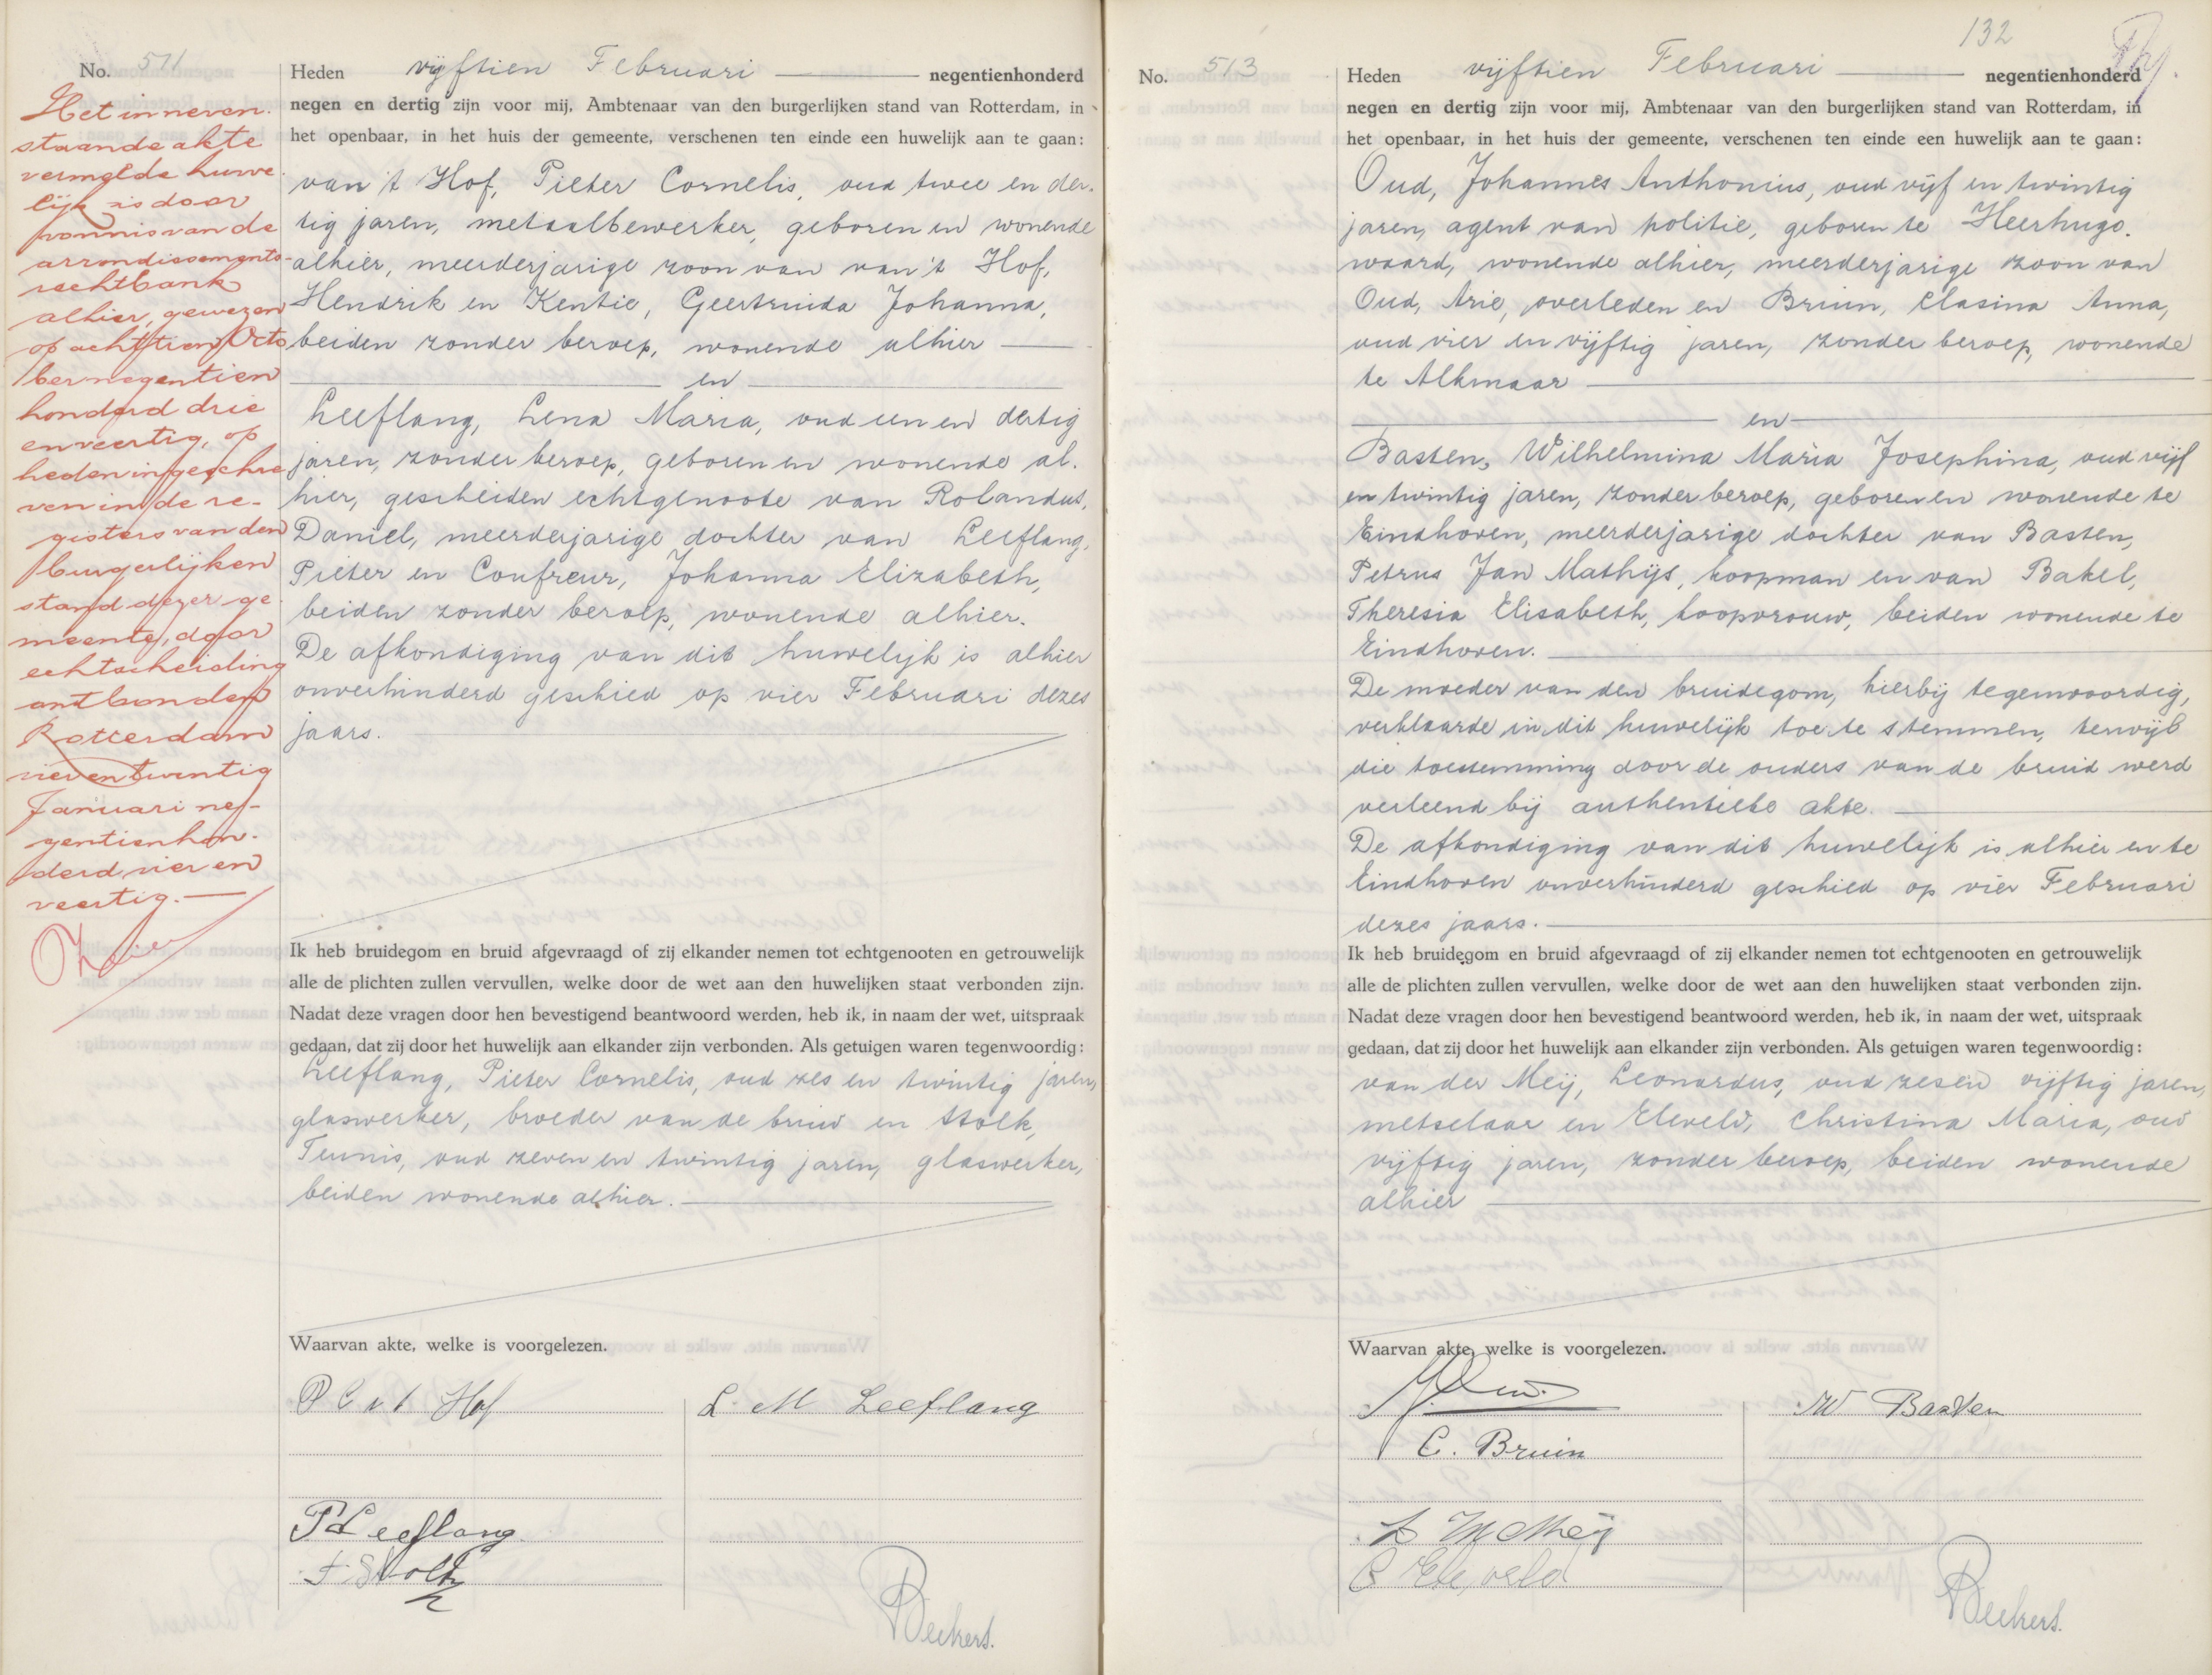 No. 511
Het in neven
staande akte
vermelde huwe
lijk is door
vonnis van de
arrondissements-
rechtbank
alhier, gewezen
op achttien Octo
ber negentien
honderd drie
en veertig, op
heden ingeschre
ven in de re-
gisters van den
burgerlijken
stand dezer ge
meente, door
echtscheiding
ontbonden
Rotterdam
vier en twintig
Januari ne-
gentienhon-
derd vier en
veertig.
Heden vijftien Februari negentienhonderd
negen en dertig zijn voor mij, Ambtenaar van den burgerlijken stand van Rotterdam, in
het openbaar, in het huis der gemeente, verschenen ten einde een huwelijk aan te gaan:
van 't Hof, Pieter Cornelis, oud twee en der-
tig jaren, metaalbewerker, geboren en wonende
alhier, meerderjarige zoon van van 't Hof,
Hendrik en Kentie, Geertruida Johanna,
beiden zonder beroep, wonende alhier
en
Leeflang, Lena Maria, oud een en dertig
jaren, zonder beroep, geboren en wonende al-
hier, gescheiden echtgenoote van Rolandus,
Daniel, meerderjarige dochter van Leeflang,
Pieter en Coufreur, Johanna Elizabeth,
beiden zonder beroep, wonende alhier.
De afkondiging van dit huwelijk is alhier
onverhinderd geschied op vier Februari dezes
jaars.
Ik heb bruidegom en bruid afgevraagd of zij elkander nemen tot echtgenooten en getrouwelijk
alle de plichten zullen vervullen, welke door de wet aan den huwelijken staat verbonden zijn.
Nadat deze vragen door hen bevestigend beantwoord werden, heb ik, in naam der wet, uitspraak
gedaan, dat zij door het huwelijk aan elkander zijn verbonden. Als getuigen waren tegenwoordig:
Leeflang, Pieter Cornelis, oud zes en twintig jaren,
glaswerker, broeder van de bruid en Stolk,
Teunis, oud zeven en twintig jaren, glaswerker,
beiden wonende alhier.
Waarvan akte, welke is voorgelezen.
P C v t Hof
L. M Leeflang
P Leeflang
T. Stolk
Beekers.
132
No. 513
Heden vijftien Februari negentienhonderd
negen en dertig zijn voor mij, Ambtenaar van den burgerlijken stand van Rotterdam, in
het openbaar, in het huis der gemeente, verschenen ten einde een huwelijk aan te gaan:
Oud, Johannes Anthonius, oud vijf en twintig
jaren, agent van politie, geboren te Heerhugo-
waard, wonende alhier, meerderjarige zoon van
Oud, Arie, overleden en Bruin, Clasina Anna,
oud vier en vijftig jaren, zonder beroep, wonende
te Alkmaar
en
Basten, Wilhelmina Maria Josephina, oud vijf
en twintig jaren, zonder beroep, geboren en wonende te
Eindhoven, meerderjarige dochter van Basten,
Petrus Jan Mathijs, koopman en van Bakel,
Theresia Elisabeth, koopvrouw, beiden wonende te
Eindhoven.
De moeder van den bruidegom, hierbij tegenwoordig,
verklaarde in dit huwelijk toe te stemmen, terwijl
die toestemming door de ouders van de bruid werd
verleend bij authentieke akte.
De afkondiging van dit huwelijk is alhier en te
Eindhoven onverhinderd geschied op vier Februari
dezes jaars.
Ik heb bruidegom en bruid afgevraagd of zij elkander nemen tot echtgenooten en getrouwelijk
alle de plichten zullen vervullen, welke door de wet aan den huwelijken staat verbonden zijn.
Nadat deze vragen door hen bevestigend beantwoord werden, heb ik, in naam der wet, uitspraak
gedaan, dat zij door het huwelijk aan elkander zijn verbonden. Als getuigen waren tegenwoordig:
van der Meij, Leonardus, oud zes en vijftig jaren,
metselaar en Eleveld, Christina Maria, oud
vijftig jaren, zonder beroep, beiden wonende
alhier
Waarvan akte, welke is voorgelezen.
W Basten
C. Bruin
C Eleveld
Beekers.